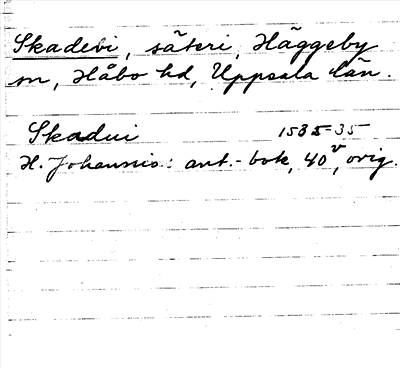 Skadevi, säteri, Häggeby
sn, Håbo hd, Uppsala län.
Skadui 1535-35
H. Johannis: ant.-bok, 40v, orig.